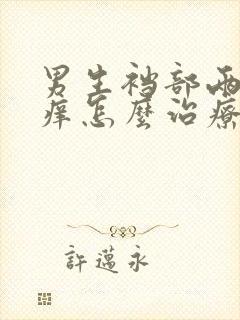 男生裆部两
痒怎麼治療
許邁永